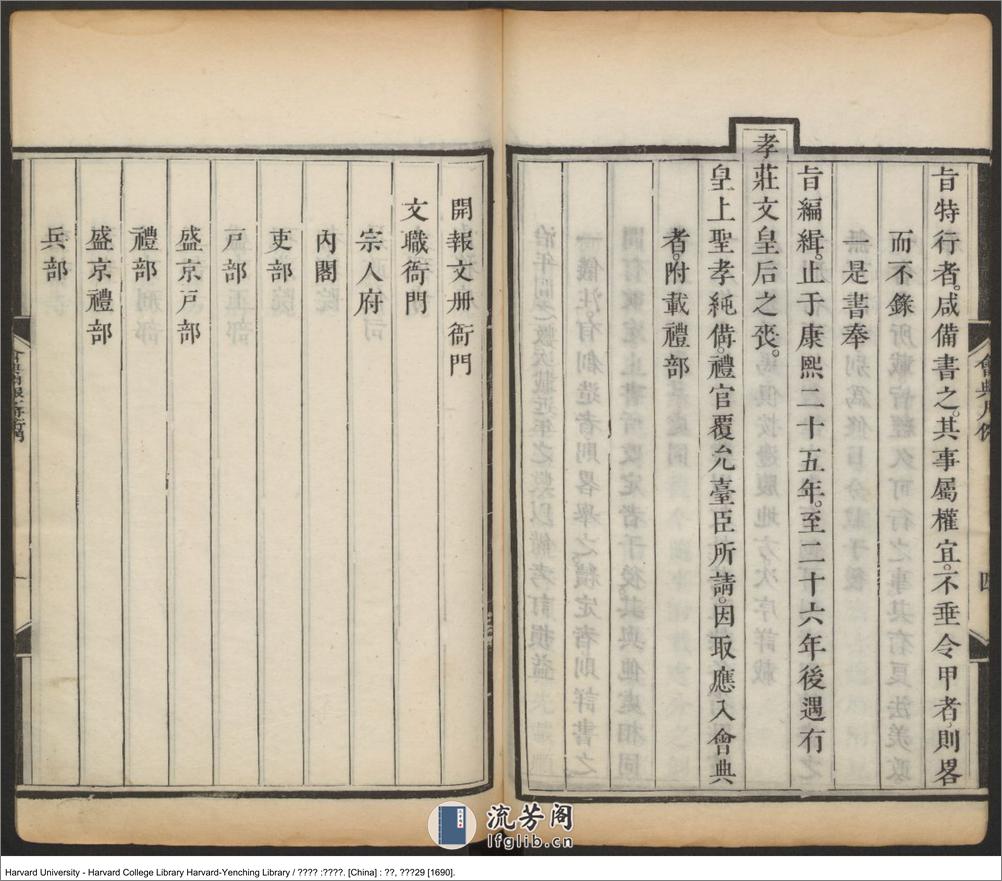 旨特行者。咸備書之。其事屬權宜。不垂令甲者。則畧
而不錄
一是書奉
旨編緝。止于康熙二十五年。至二十六年後遇有
孝莊文皇后之喪。
皇上聖孝純備。禮官覆允臺臣所請。因取應入會典
者。附載禮部
會典凡例
四
開報文册衙門
文職衙門
宗人府
內閣
吏部
戶部
盛京戶部
禮部
盛京禮部
兵部
流芳阁
lfglib.cn
Harvard University - Harvard College Library Harvard-Yenching Library / ???? :????. [China] : ??, ???29 [1690].